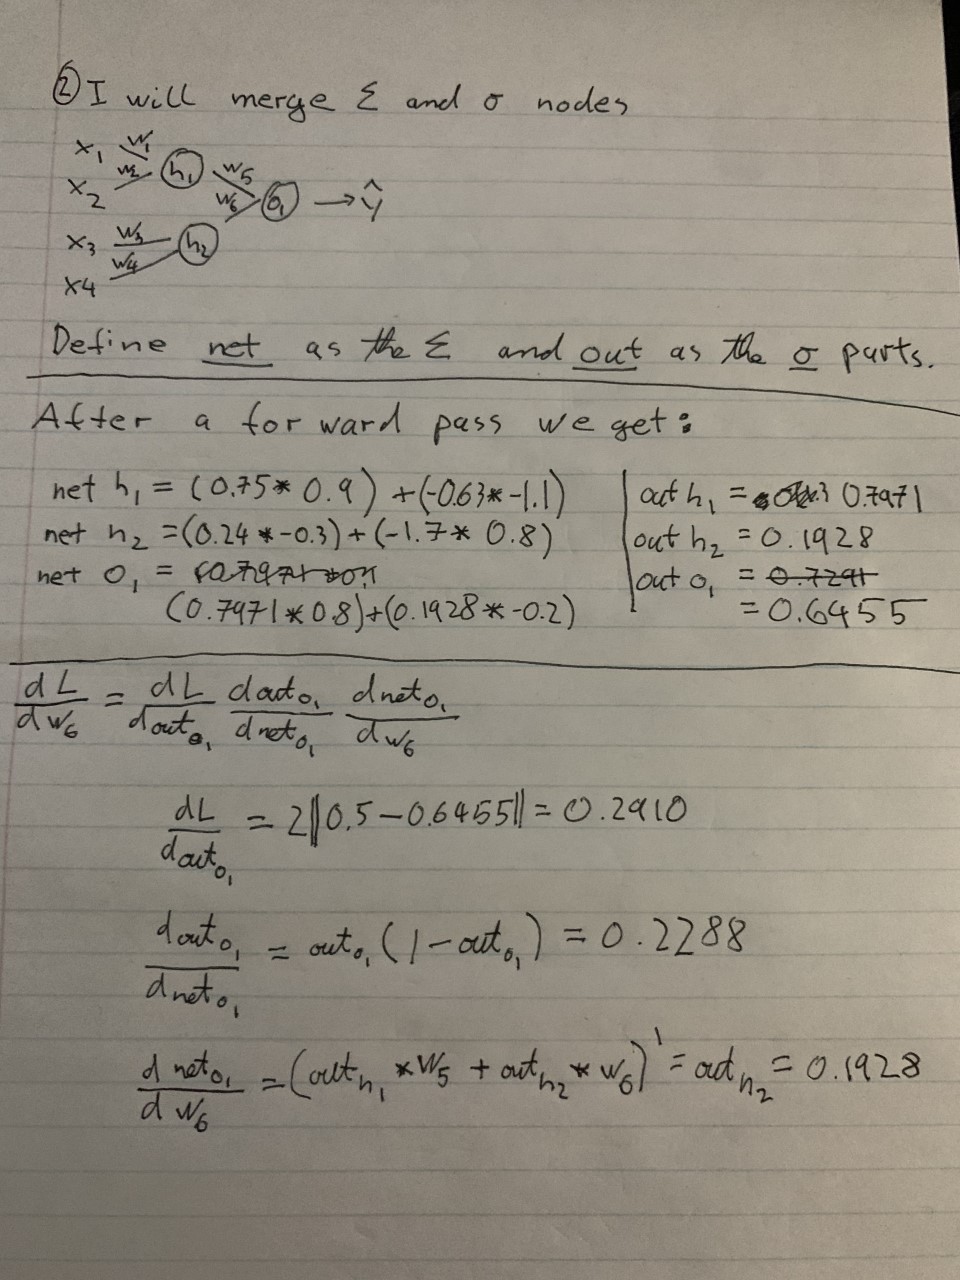 ② I will merge Σ and σ nodes
x₁ w₁
w₂ h₁ w₅
x₂ w₆ o₁ → ŷ
x₃ w₃ h₂
w₄
x4
Define net as the Σ and out as the σ parts.
After a forward pass we get:
net h₁ = (0.75* 0.9) + (-0.63* -1.1) out h₁ = 0.7971
net h₂ = (0.24 * -0.3) + (-1.7* 0.8) out h₂ = 0.1928
net o₁ = out o₁ = 0.7291
(0.7971 * 0.8) + (0.1928 * -0.2) = 0.6455
dL/dw₆ = dL/dout_o₁ dout_o₁/dnet_o₁ dnet_o₁/dw₆
dL/dout_o₁ = 2||0.5 - 0.6455|| = 0.2910
dout_o₁/dnet_o₁ = out_o₁ (1 - out_o₁) = 0.2288
d net_o₁/d w₆ = (out_h₁ * w₅ + out_h₂ * w₆)' = out_h₂ = 0.1928